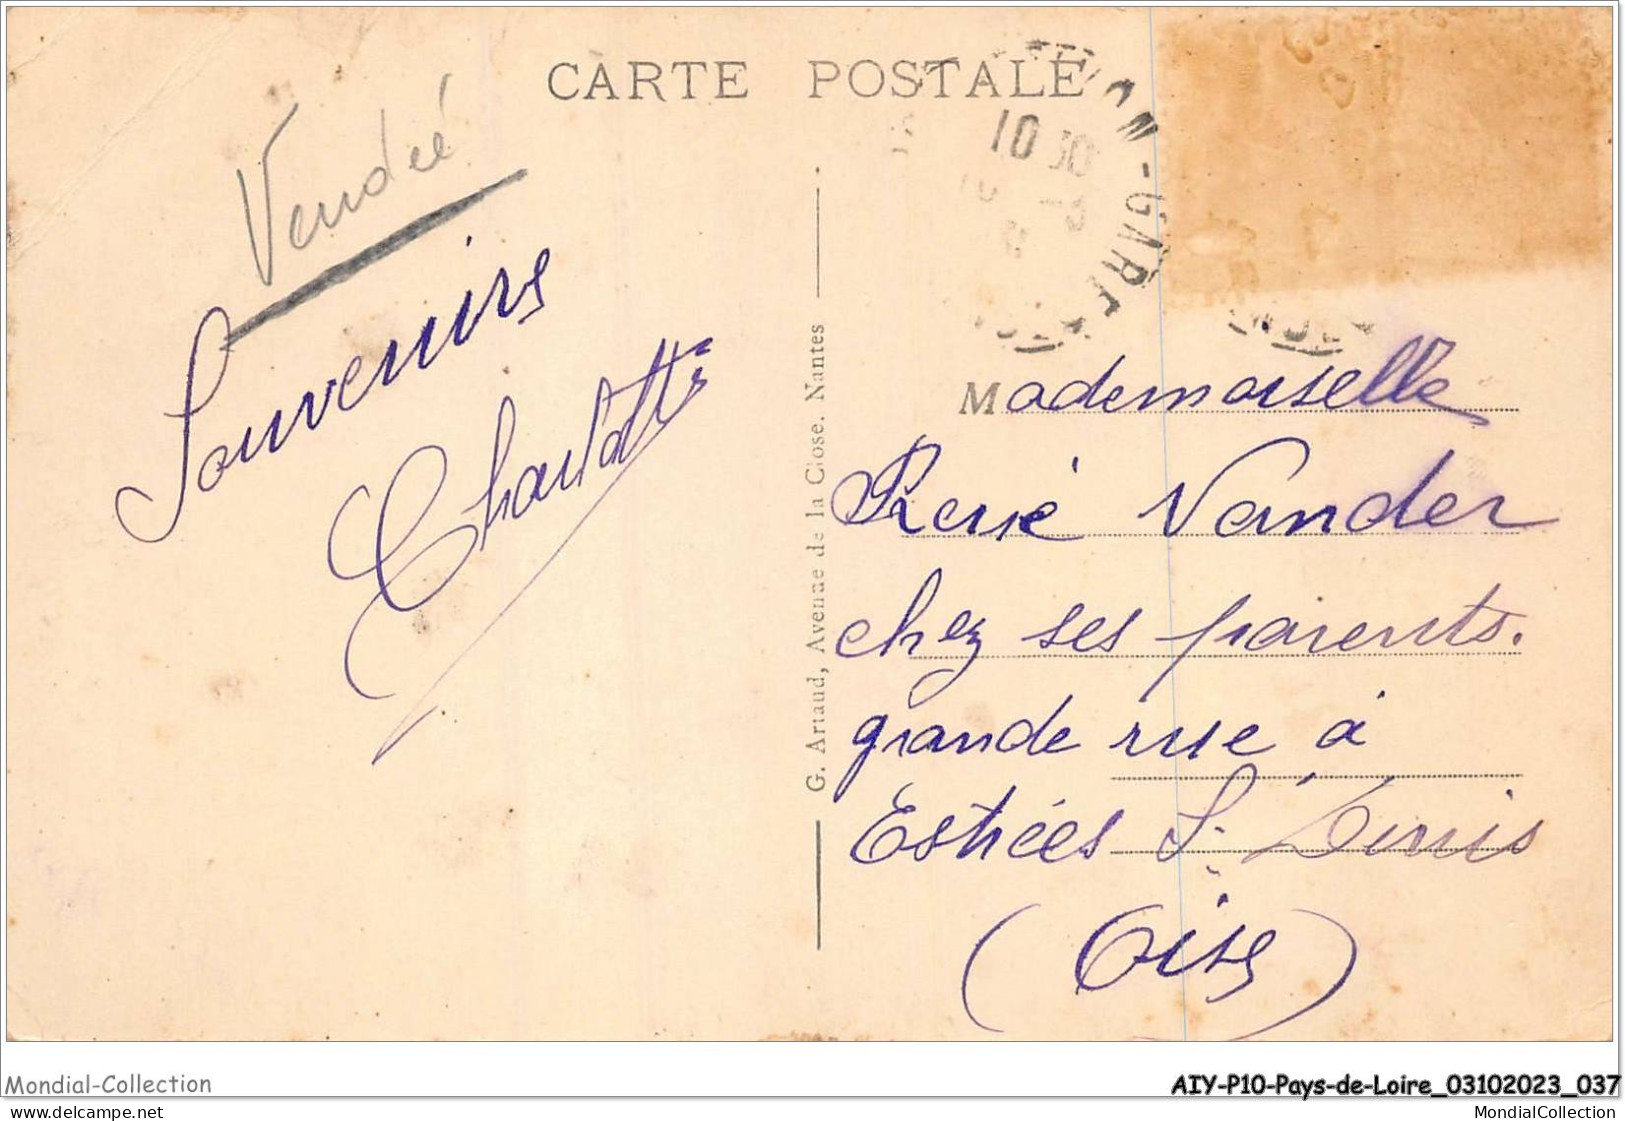 CARTE POSTALE
Vendée
10 30
-GARE
Souvenirs
Charlotte
G. Artaud, Avenue de la Close. Nantes
Mademoiselle
René Vander
chez ses parents.
grande rue à
Estrées St Denis
(Oise)
Mondial-Collection
AIY-P10-Pays-de-Loire_03102023_037
delcampe.net
MondialCollection